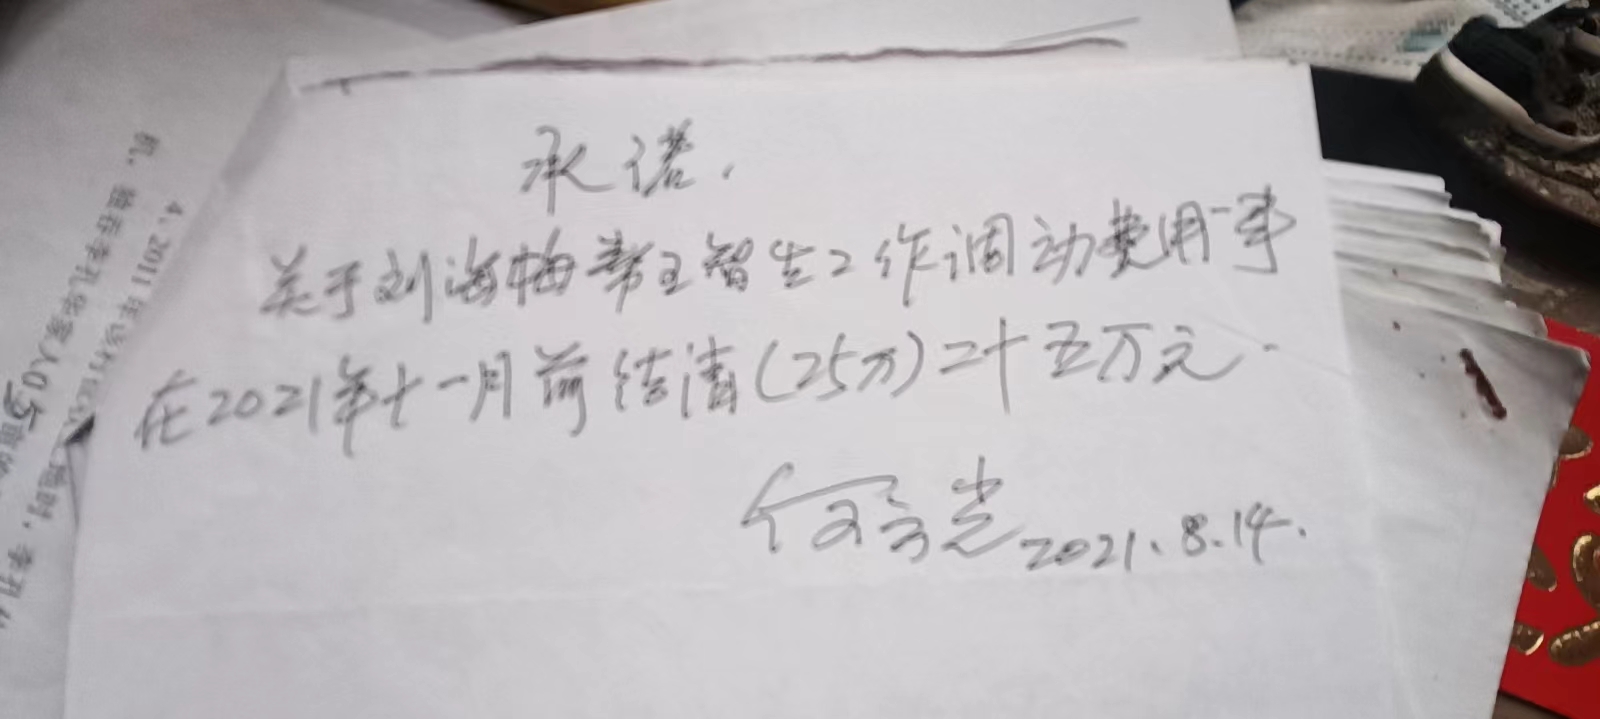 承诺.
关于刘海梅帮王智生工作调动费用一事
在2021年十一月前结清(25万)二十五万元.
2021.8.14.
4、2011年